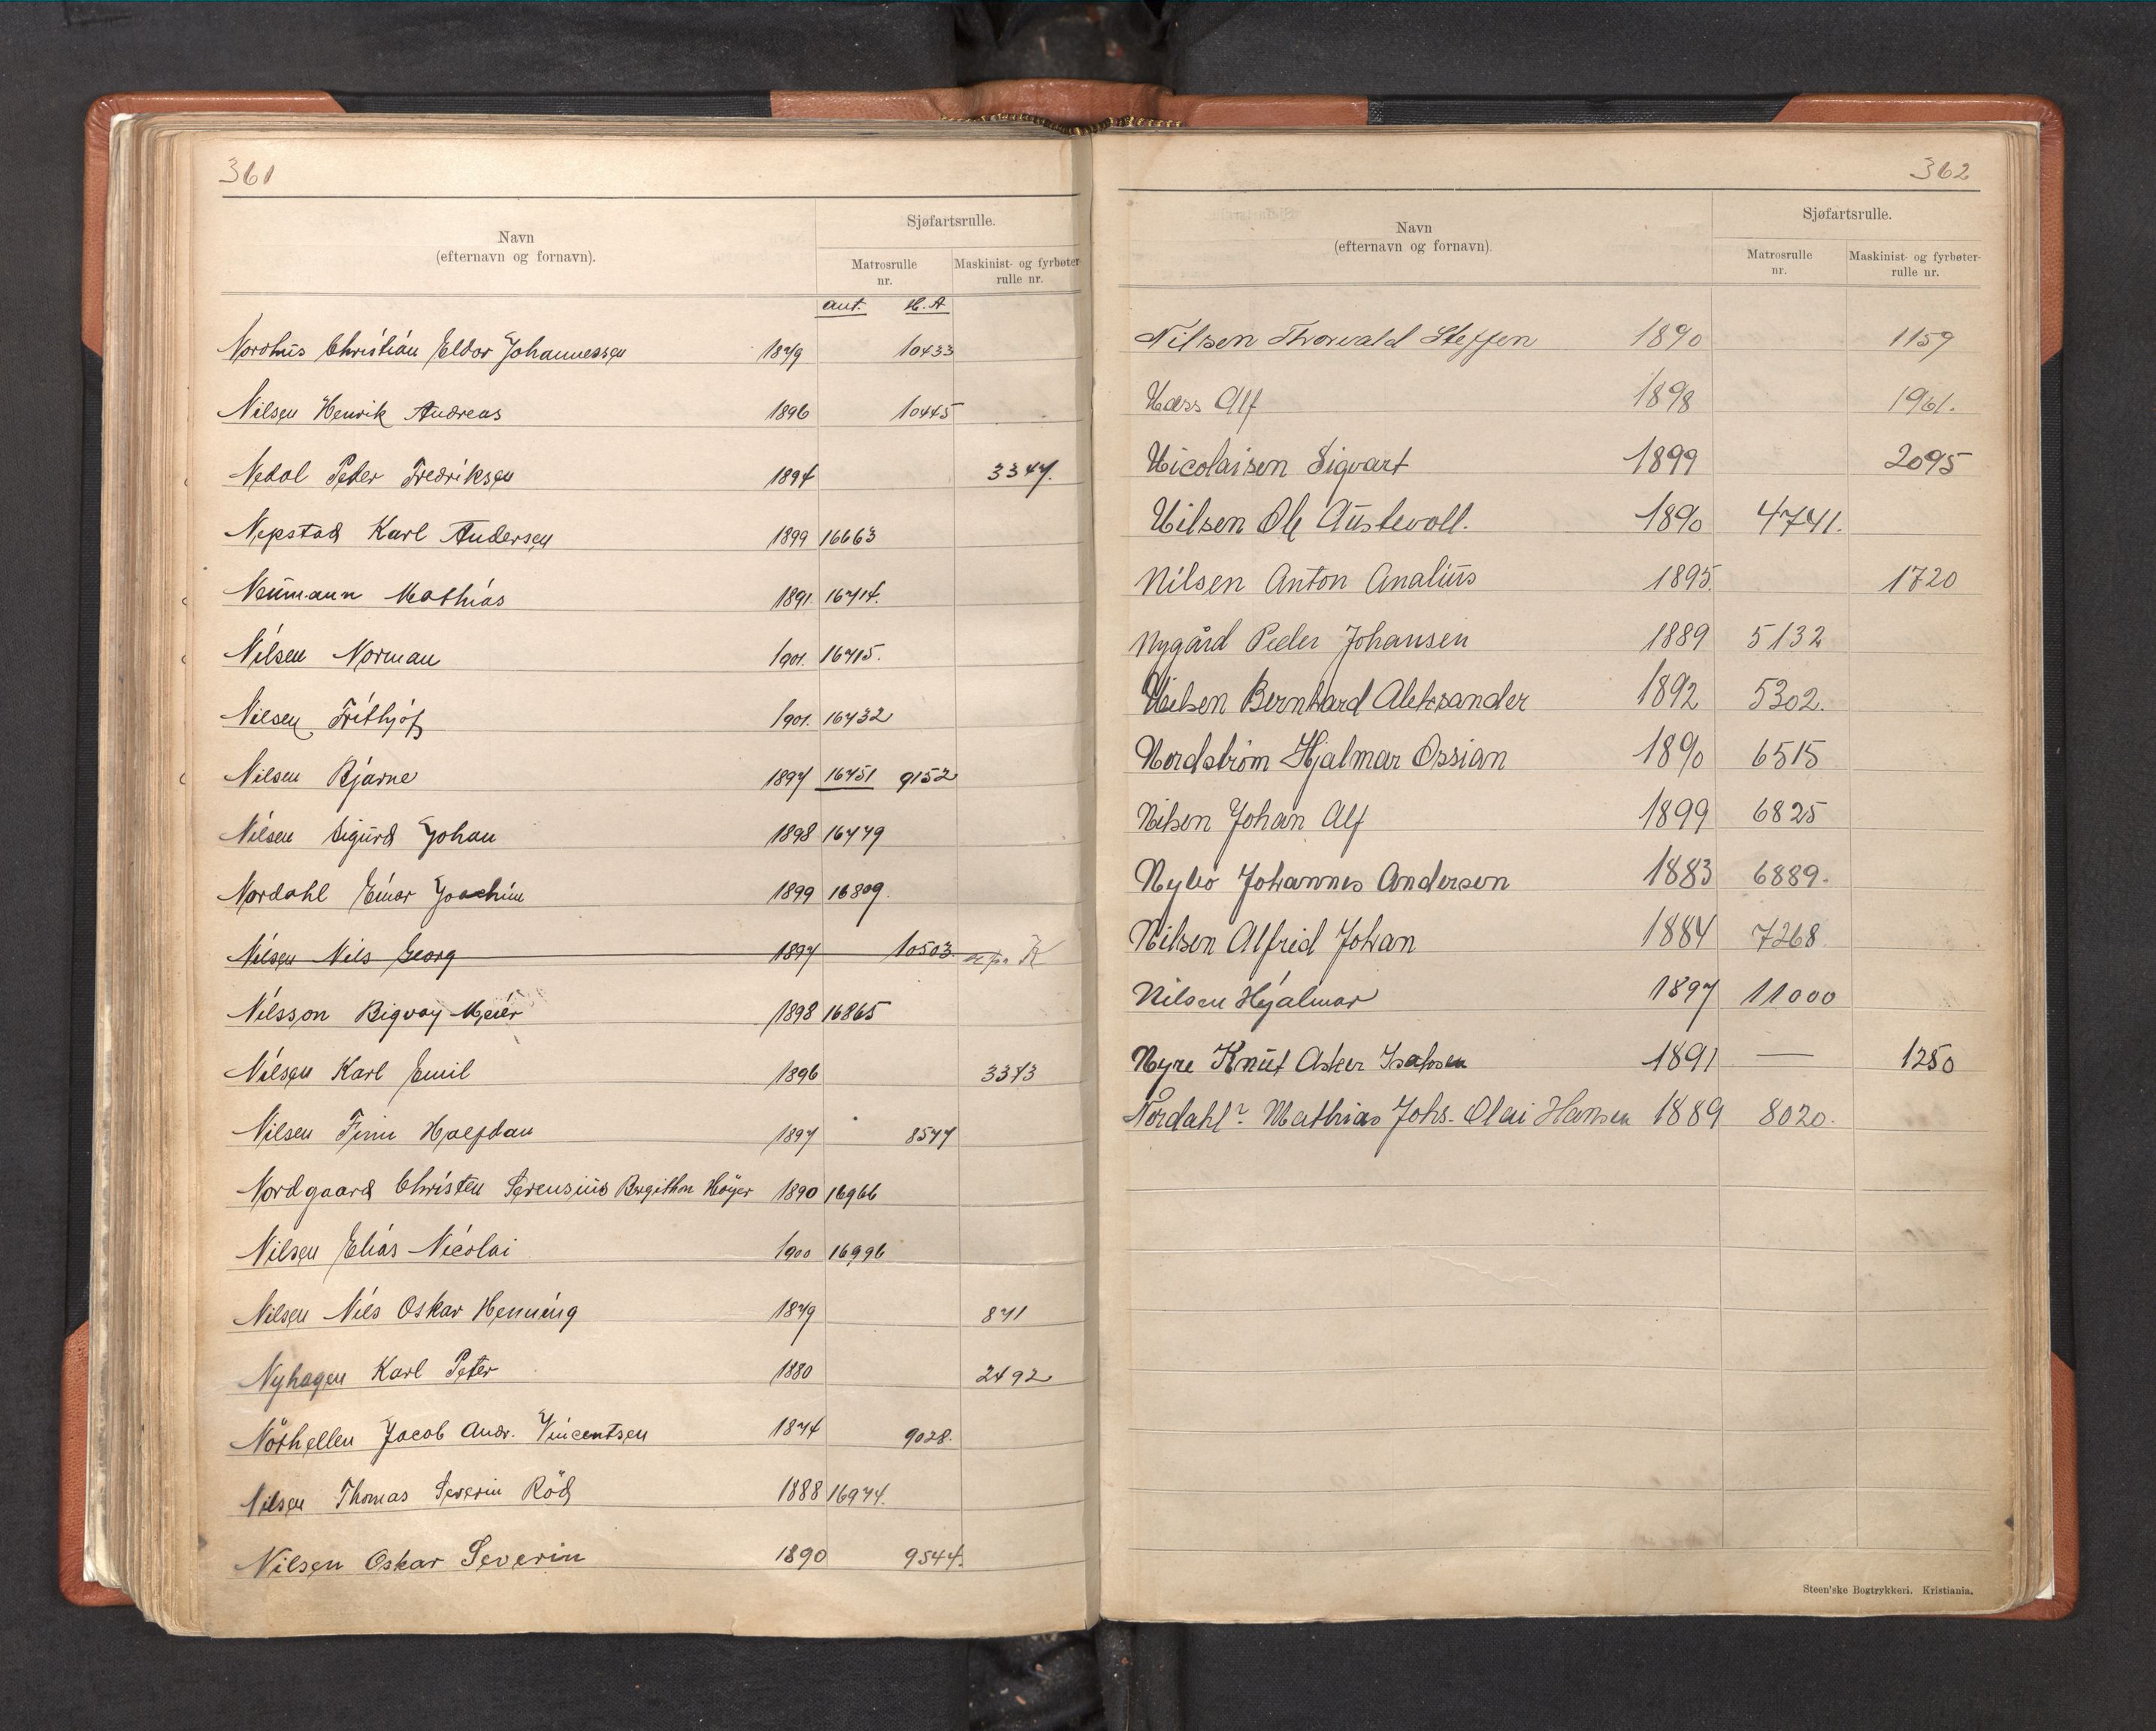 361
Navn
(efternavn og fornavn).
Sjøfartsrulle.
Matrosrulle
nr.
Maskinist- og fyrbøter-
rulle nr.
ant. H.A
Nordhus Christian Eldor Johannessen 1879 10433
Nilsen Henrik Andreas 1896 10445
Nedal Peter Fredriksen 1894 3347.
Nepstad Karl Andersen 1899 16663
Neumann Mathias 1891. 16714.
Nilsen Norman 1901. 16715.
Nilsen Frithjof 1901. 16732
Nilsen Bjarne 1897 16751 9152
Nilsen Sigurd Johan 1898 16779
Nordahl Einar Joachim 1899 16809.
Nilsen Nils Georg 1897 10503. K
Nilsson Bigvay Meier 1898 16865
Nilsen Karl Emil 1896 3373
Nilsen Finn Halfdan 1897 8577
Nordgaard Christen Serensius Høyer 1890 16966
Nilsen Elias Nicolai 1900 16996
Nilsen Nils Oskar Henning 1879 871
Nyhagen Karl Peter 1880 2492
Nörhellen Jacob Andr. Vincentsen 1874 9028.
Nilsen Thomas Severin Röd 1888 16974.
Nilsen Oskar Severin 1890 9544.
362
Navn
(efternavn og fornavn).
Sjøfartsrulle.
Matrosrulle
nr.
Maskinist- og fyrbøter-
rulle nr.
Nilsen Thorvald Steffen 1890 1159
Næss Alf 1898 1961.
Nicolaisen Sigvart 1899 2095
Nilsen Ole Austevoll. 1890 4741.
Nilsen Anton Analius 1895. 1720
Nygård Peder Johansen 1889 5132
Nilsen Bernhard Aleksander 1892 5302.
Nordstrøm Hjalmar Ossian 1890 6515
Nilsen Johan Alf 1899 6825
Nybø Johannes Andersen 1883 6889.
Nilsen Alfred Johan 1884 7268
Nilsen Hjalmar 1897 11000
Nyre Knut Asker Isaksen 1891 — 1250
Nordahl Mathias Johs. Olai Hansen 1889 8020.
Steen'ske Bogtrykkeri. Kristiania.